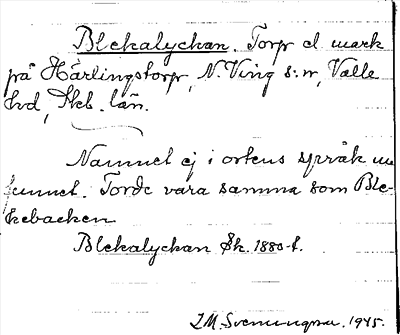 Blekalyckan. Torp el. mark
på Härlingstorp, N. Ving s:n, Valle
hd, Skb. län.
Namnet ej i ortens språk nu
kunnat. Torde vara samma som Ble-
kebacken
Blekalyckan Jk. 1880-t.
J.M. Svenungsson. 1945.